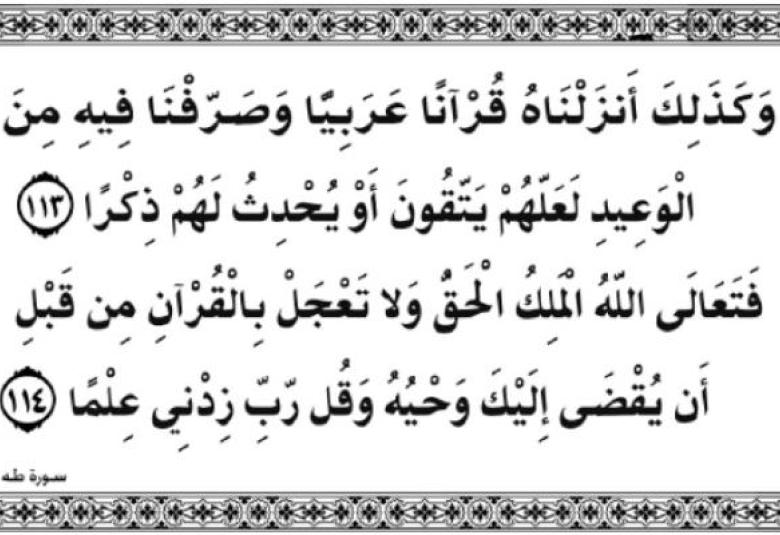 وَكَذَلِكَ أَنزَلْنَاهُ قُرْآنًا عَرَبِيًّا وَصَرَّفْنَا فِيهِ مِنَ
الْوَعِيدِ لَعَلَّهُمْ يَتَّقُونَ أَوْ يُحْدِثُ لَهُمْ ذِكْرًا ١١٣
فَتَعَالَى اللَّهُ الْمَلِكُ الْحَقُّ وَلا تَعْجَلْ بِالْقُرْآنِ مِن قَبْلِ
أَن يُقْضَى إِلَيْكَ وَحْيُهُ وَقُل رَّبِّ زِدْنِي عِلْمًا ١١٤
سورة طه